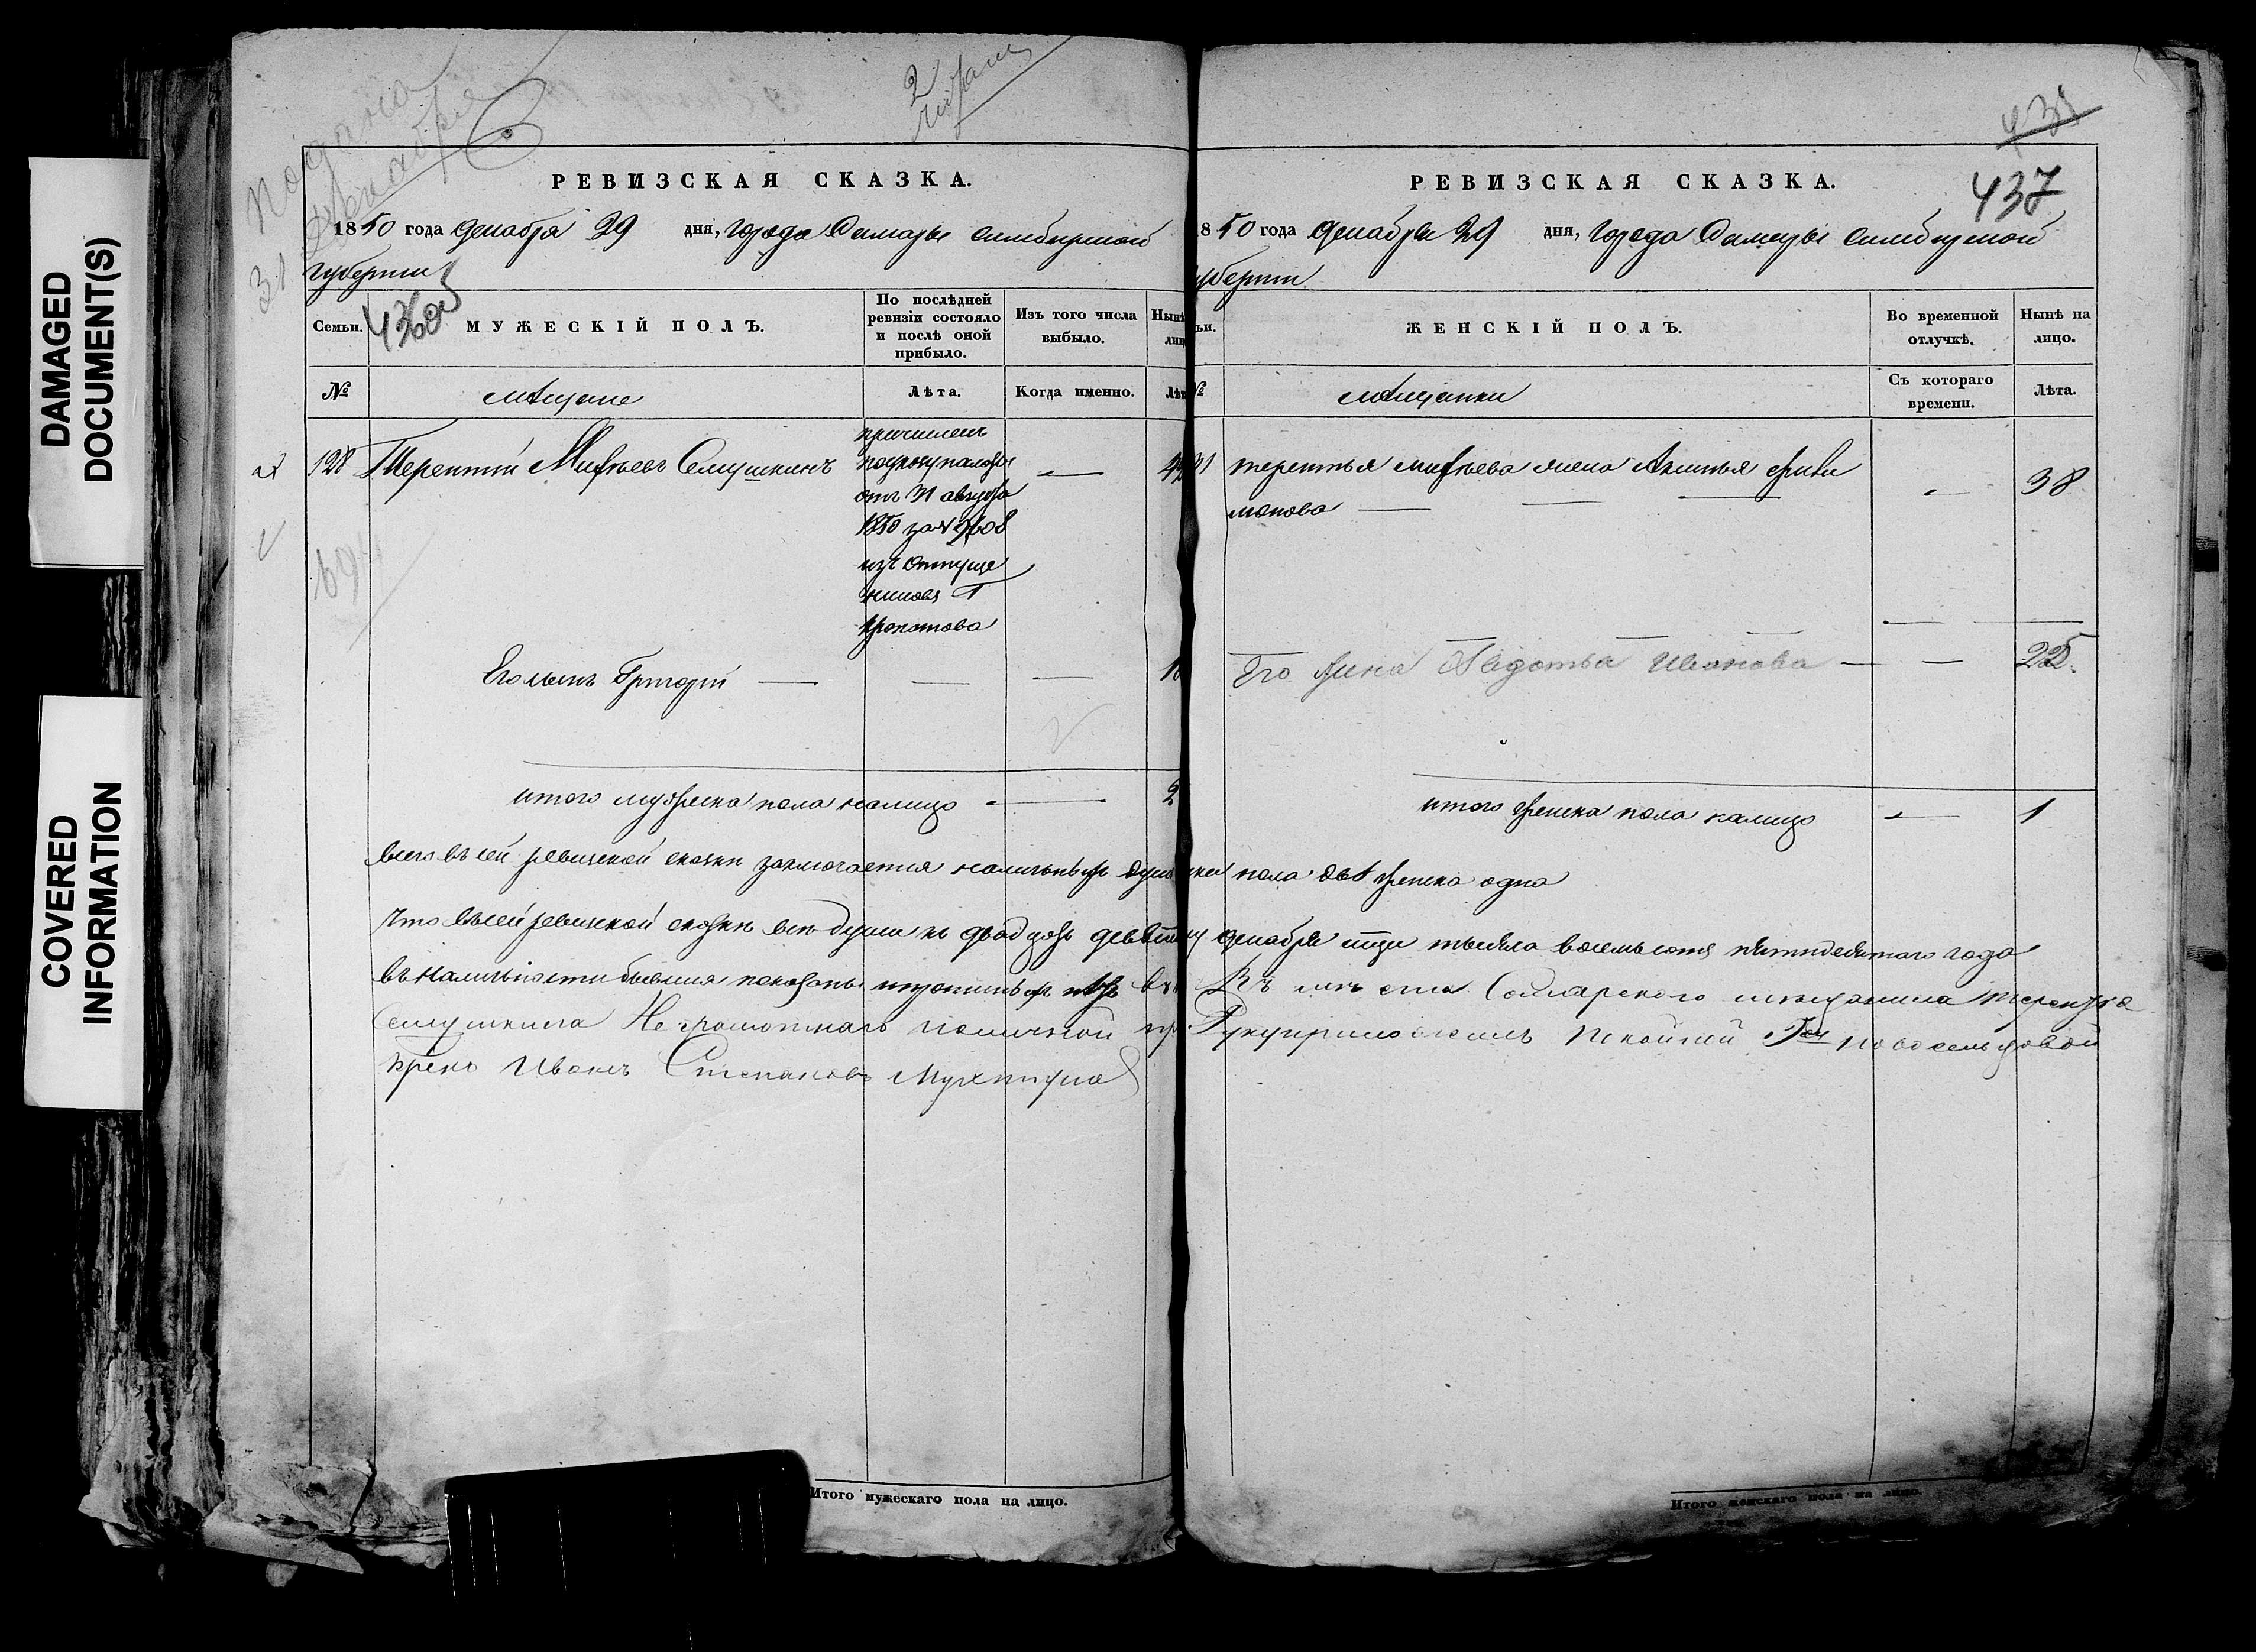 DAMAGED
DOCUMENT(S)
COVERED
INFORMATION
Подана
31 декабря
2
437
436об
РЕВИЗСКАЯ СКАЗКА.
1850 года декабря 29 дня, города Самары симбирской
губернии
Семьи. МУЖЕСКІЙ ПОЛЪ.
По послѣдней
ревизіи состояло
и послѣ оной
прибыло.
Изъ того числа
выбыло.
Нынѣ
лиц
№ мѣщане Лѣта. Когда именно. Лѣт
128 Терентій Михѣевъ Семушкинъ
причисленъ
по указу палаты
отъ 31 августа
1850 за №
изъ отпуще
никовъ Г
—
42
Его сынъ Григорій — — — 1
итого мужеска пола налицо — 2
РЕВИЗСКАЯ СКАЗКА.
850 года декабря 29 дня, города Самары симбирской
губернии
ьи. ЖЕНСКІЙ ПОЛЪ.
Во временной
отлучкѣ.
Нынѣ на
лицо.
№ мѣщанки
Съ котораго
времени.
Лѣта.
Терентья Михѣева жена Акулина
— 38
Его жена Авдотья Иванова — — 22
итого женска пола налицо — 1
всего въ сей ревизской сказки заключается наличныхъ душъ пола двѣ женска одна
Что въ сей ревизской сказкѣ всѣ души къ двадцать девятому декабря тысяча восемьсотъ пятидесятаго года
въ наличности бывшия показаны Къ сей Самарского мещанина Терентья
Семушкина Неграмотнаго по личной Руку приложилъ покойной
Иванъ Степановъ
Итого мужескаго пола на лицо.
Итого женскаго пола на лицо.